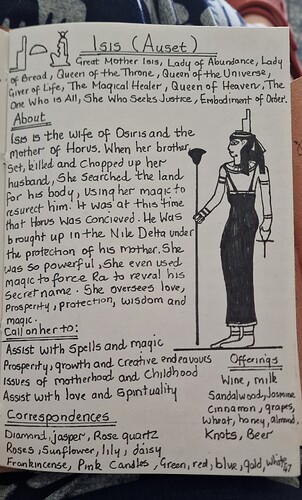 Isis (Auset)
Great Mother Isis, Lady of Abundance, Lady
of Bread, Queen of the Throne, Queen of the Universe,
Giver of Life, The Magical Healer, Queen of Heaven, The
One Who is All, She Who Seeks Justice, Embodiment of Order.
About
Isis is the wife of Osiris and the
mother of Horus. When her brother
Set, killed and Chopped up her
husband, She Searched the land
for his body, Using her magic to
resurrect him. It was at this time
that Horus was Concieved. He was
brought up in the Nile Delta under
the protection of his mother. She
was so powerful, She even used
magic to force Ra to reveal his
Secret name. She oversees love,
Prosperity, protection, wisdom and
magic.
Call on her to:
Assist with Spells and magic
Prosperity, growth and Creative endeavours
Issues of motherhood and Childhood
Assist with love and Spirituality
Offerings
Wine, milk
Sandalwood, Jasmine
Cinnamon, grapes,
Wheat, honey, almond,
Knots, Beer
Correspondences
Diamond, jasper, Rose quartz
Roses, Sunflower, lily, daisy
Frankincense, Pink Candles, Green, red, blue, gold, white
67